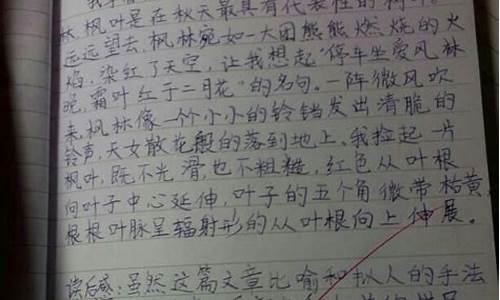 林,枫叶是在秋天最具有代表性的树叶。
远远望去,枫林宛如一大团熊熊燃烧的火
焰,染红了天空,让我想起"停车坐爱风林
晚,霜叶红于二月花"的名句。一阵微风吹
来,枫林像一个个小小的铃铛发出清脆的
铃声,天女散花般的落到地上、我捡起一片
枫叶,既不光滑,也不粗糙,红色从叶根
向叶子中心延伸,叶子的五个角微带枯黄,
根根叶脉呈辐射形的从叶根向上伸展。
读后感:虽然这篇文章比喻和拟人的手法